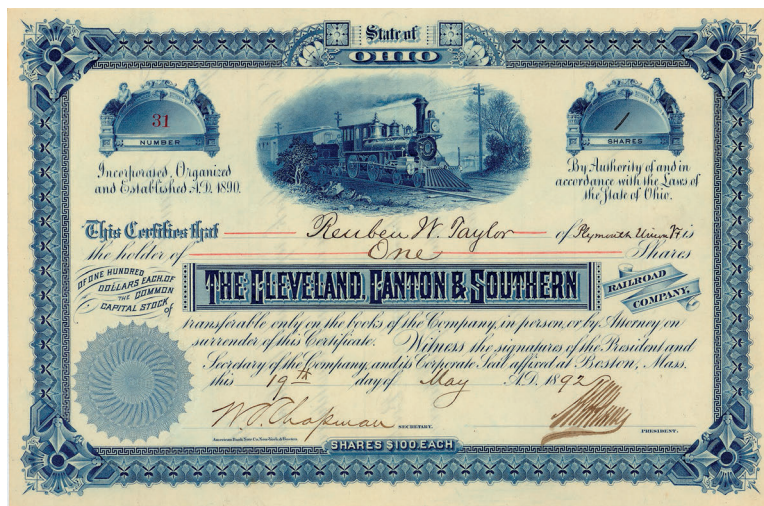 State of
OHIO
31
NUMBER
1
SHARES
Incorporated, Organized
and Established A.D. 1890.
By Authority of and in
accordance with the Laws of
the State of Ohio.
This Certifies that Reuben W. Taylor of Plymouth Union Vt is
the holder of One Shares
OF ONE HUNDRED
DOLLARS EACH OF
THE COMMON
CAPITAL STOCK of
THE CLEVELAND, CANTON & SOUTHERN
RAILROAD
COMPANY,
transferable only on the books of the Company, in person, or by Attorney on
surrender of this Certificate. Witness the signatures of the President and
Secretary of the Company, and its Corporate Seal affixed at Boston, Mass.
this 19th day of May A.D. 1892
W. O. Chapman SECRETARY.
PRESIDENT.
American Bank Note Co. New York & Boston.
SHARES $100 EACH